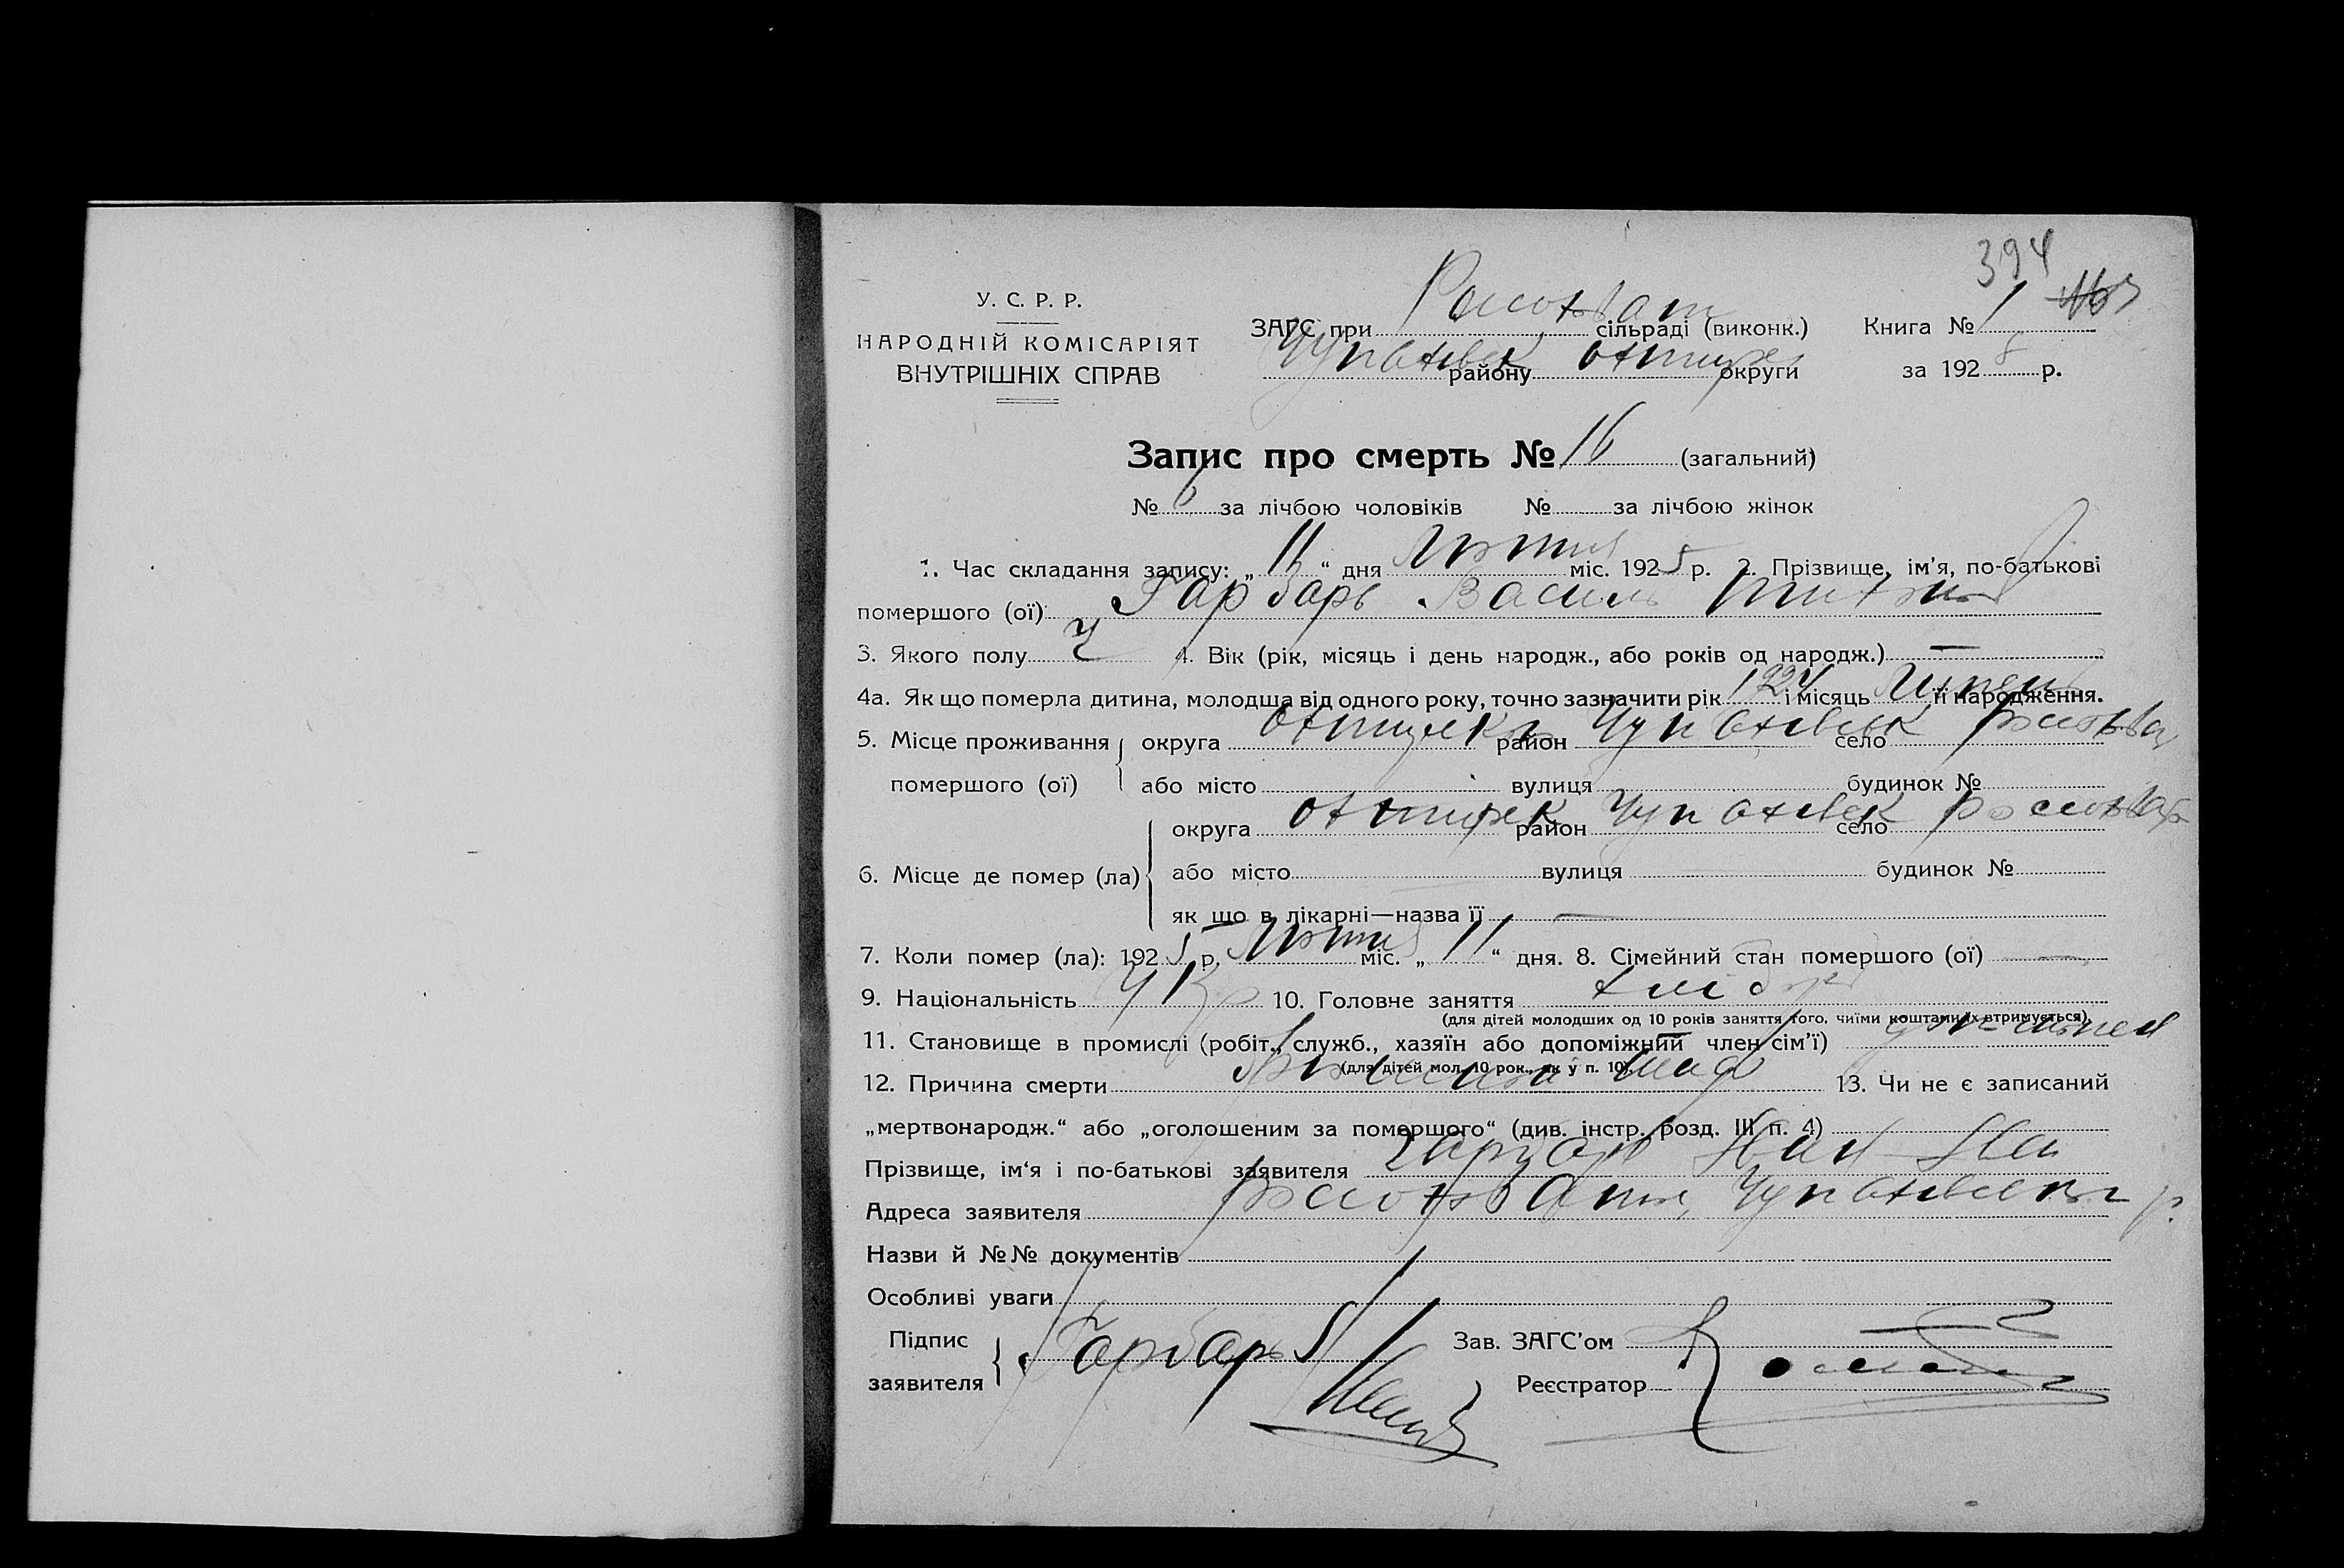 394
У. С. Р. Р.
НАРОДНІЙ КОМІСАРІЯТ
ВНУТРІШНІХ СПРАВ
ЗАГС при Расохват сільраді (виконк.) Книга № 1
Чупахівськ району Охтирк округи за 1925 р.
Запис про смерть № 16 (загальний)
№ 6 за лічбою чоловіків № за лічбою жінок
1. Час складання запису: „11“ дня Лютия міс. 1925 р. 2. Прізвище, ім'я, по-батькові
помершого (ої) Гарбарь Василь
3. Якого полу Ч 4. Вік (рік, місяць і день народж., або років од народж.) —
4а. Як що померла дитина, молодша від одного року, точно зазначити рік 1924 і місяць Липень її народження.
5. Місце проживання помершого (ої) округа район Чупахівськ село
або місто вулиця будинок №
6. Місце де помер (ла) округа Охтирськ район Чупахівськ село
або місто вулиця будинок №
як що в лікарні—назва її —
7. Коли помер (ла): 1925 р. Лютия міс. „11“ дня. 8. Сімейний стан помершого (ої) —
9. Національність Укр 10. Головне заняття хлібор
(для дітей молодших од 10 років заняття того, чиїми коштами їх втримується)
11. Становище в промислі (робіт., служб., хазяїн або допоміжний член сім'ї)
(для дітей мол. 10 рок., як у п. 10)
12. Причина смерти 13. Чи не є записаний
„мертвонародж.“ або „оголошеним за помершого“ (див. інстр. розд. III п. 4)
Прізвище, ім'я і по-батькові заявителя Гарбарь
Адреса заявителя Росохвати, Чупахівськ р.
Назви й №№ документів
Особливі уваги
Підпис заявителя Гарбарь
Зав. ЗАГС'ом
Реєстратор